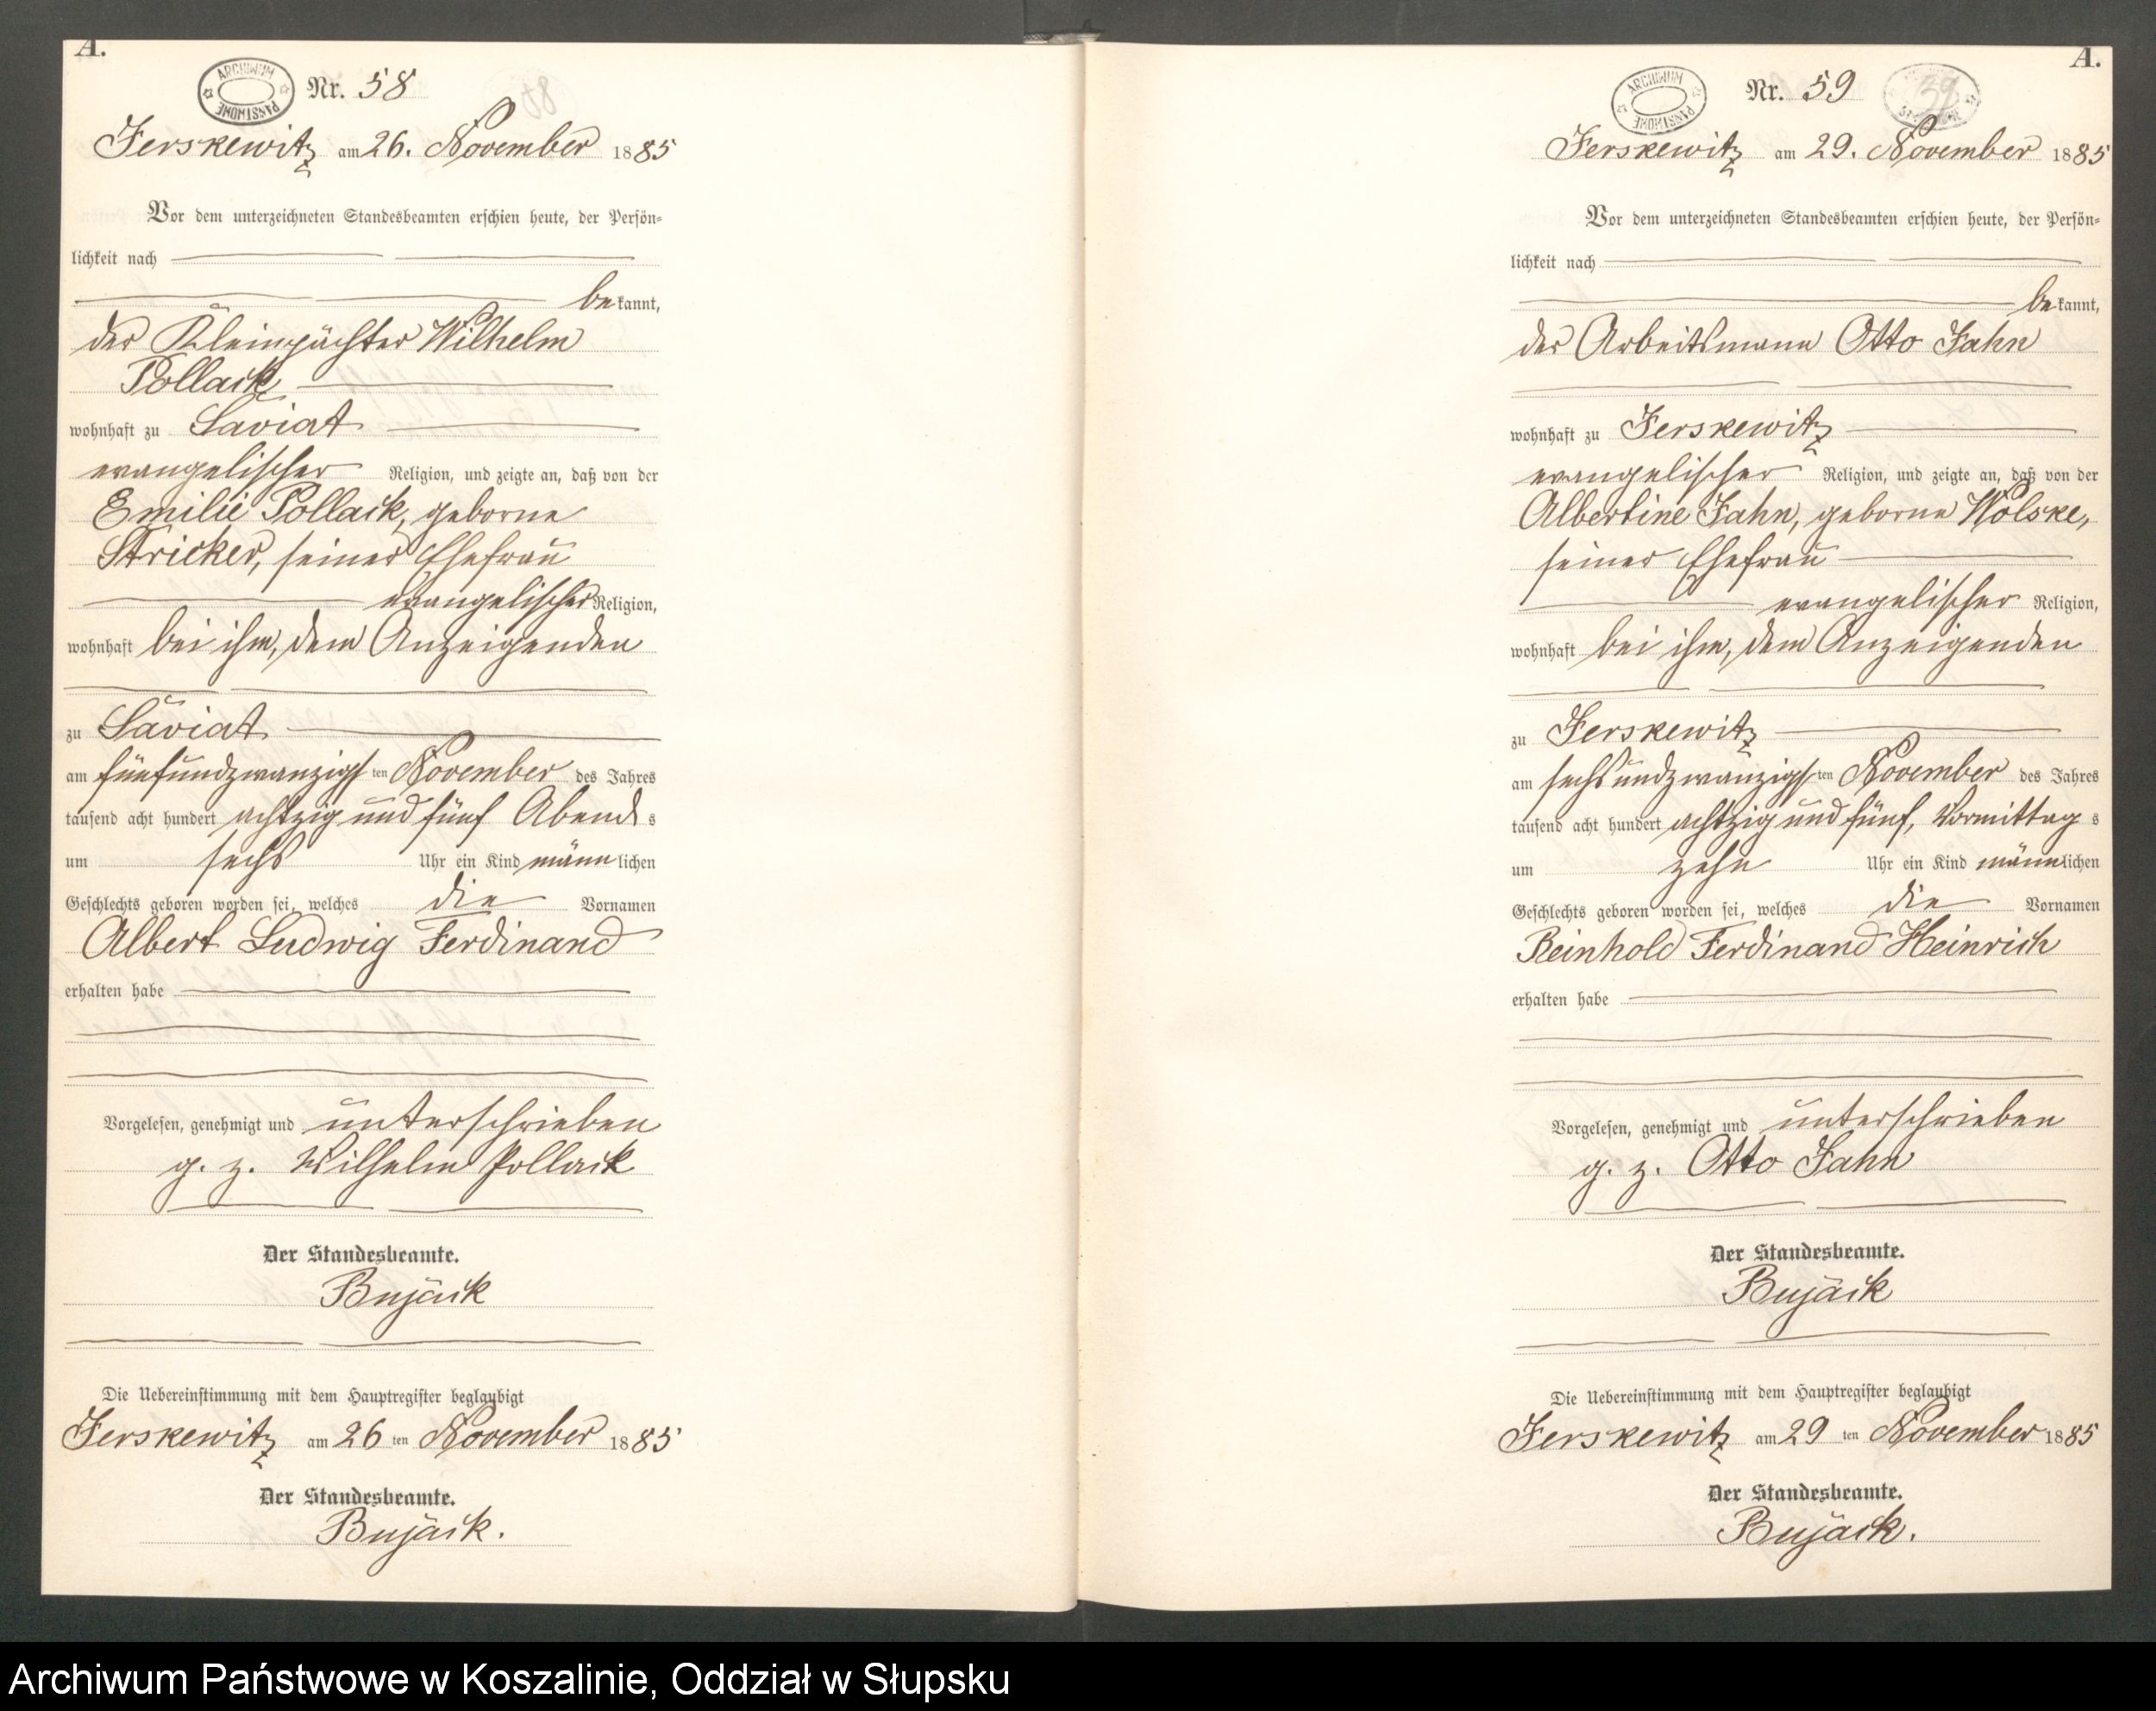 A.
ARCHIWUM PAŃSTWOWE
Nr. 58
Jerskewitz am 26. November 1885
Vor dem unterzeichneten Standesbeamten erschien heute, der Persön-
lichkeit nach
bekannt,
der Kleinpächter Wilhelm
Pollack
wohnhaft zu Saviat
evangelischer Religion, und zeigte an, daß von der
Emilie Pollack, geborne
Stricker, seiner Ehefrau
evangelischer Religion,
wohnhaft bei ihm, dem Anzeigenden
zu Saviat
am fünfundzwanzigsten November des Jahres
tausend acht hundert achtzig und fünf Abends
um sechs Uhr ein Kind männlichen
Geschlechts geboren worden sei, welches die Vornamen
Albert Ludwig Ferdinand
erhalten habe
Vorgelesen, genehmigt und unterschrieben
g. z. Wilhelm Pollack
Der Standesbeamte.
Bujack
Die Uebereinstimmung mit dem Hauptregister beglaubigt
Jerskewitz am 26 ten November 1885
Der Standesbeamte.
Bujack.
A.
ARCHIWUM PAŃSTWOWE
Nr. 59
39
Jerskewitz am 29. November 1885
Vor dem unterzeichneten Standesbeamten erschien heute, der Persön-
lichkeit nach
bekannt,
der Arbeitsmann Otto Jahn
wohnhaft zu Jerskewitz
evangelischer Religion, und zeigte an, daß von der
Albertine Jahn, geborne Wolske,
seiner Ehefrau
evangelischer Religion,
wohnhaft bei ihm, dem Anzeigenden
zu Jerskewitz
am sechsundzwanzigsten November des Jahres
tausend acht hundert achtzig und fünf, Vormittags
um zehn Uhr ein Kind männlichen
Geschlechts geboren worden sei, welches die Vornamen
Reinhold Ferdinand Heinrich
erhalten habe
Vorgelesen, genehmigt und unterschrieben
g. z. Otto Jahn
Der Standesbeamte.
Bujack
Die Uebereinstimmung mit dem Hauptregister beglaubigt
Jerskewitz am 29 ten November 1885
Der Standesbeamte.
Bujack.
Archiwum Państwowe w Koszalinie, Oddział w Słupsku